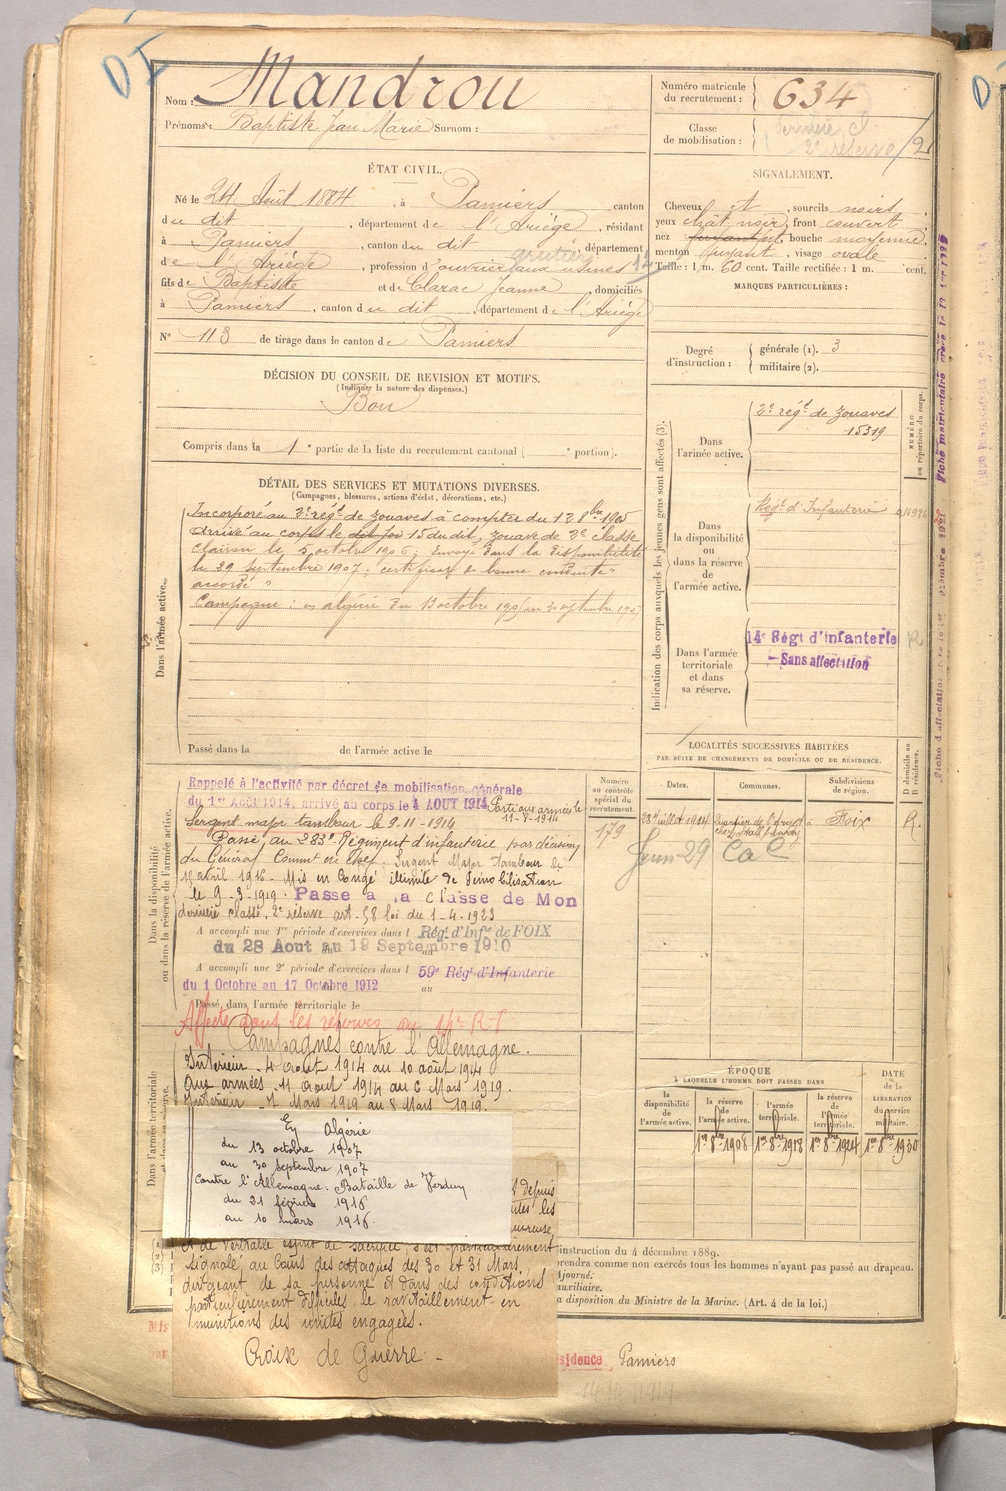 Nom : Mandrou
Prénoms : Baptiste Jean Marie Surnom :
Numéro matricule du recrutement : 634
Classe de mobilisation : dernière cl. 2e réserve /2
ÉTAT CIVIL.
Né le 24 Août 1884, à Pamiers canton
du dit, département de l'Ariège, résidant
à Pamiers, canton du dit, département
de l'Ariège, profession d'ouvrier aux usines
fils de Baptiste et de Clarac Jeanne, domiciliés
à Pamiers, canton du dit, département de l'Ariège
N° 113 de tirage dans le canton de Pamiers
SIGNALEMENT.
Cheveux et, sourcils noirs
yeux chât. noir, front couvert
nez, bouche moyenne
menton fuyant, visage ovale
Taille : 1 m. 60 cent. Taille rectifiée : 1 m. cent.
MARQUES PARTICULIÈRES :
Degré d'instruction : générale (1). 3
militaire (2).
DÉCISION DU CONSEIL DE REVISION ET MOTIFS.
(Indiquer la nature des dispenses.)
Bon
Compris dans la 1e partie de la liste du recrutement cantonal ( e portion).
DÉTAIL DES SERVICES ET MUTATIONS DIVERSES.
(Campagnes, blessures, actions d'éclat, décorations, etc.)
Dans l'armée active.
Incorporé au 2e régt de zouaves à compter du 12 8bre 1905
arrivé au corps le 15 du dit, zouave de 2e classe
clairon le 5 octobre 1906; Envoyé dans la disponibilité
le 29 septembre 1907; certificat de bonne conduite
accordé
Campagne : en algérie du 13 octobre
Passé dans la de l'armée active le
Indication des corps auxquels les jeunes gens sont affectés (3).
NUMÉRO au répertoire du corps.
Dans l'armée active.
2e régt de zouaves
15319
Dans la disponibilité ou dans la réserve de l'armée active.
Régt d'Infanterie
Dans l'armée territoriale et dans sa réserve.
14e Régt d'infanterie
- Sans affectation
Dans la disponibilité ou dans la réserve de l'armée active.
Rappelé à l'activité par décret de mobilisation générale
du 1er Août 1914, arrivé au corps le 4 AOUT 1914 Parti aux armées le 11-8-1914
Sergent major tambour le 9-11-1914
Passé au 283e Régiment d'infanterie par décision
du Général Commt en Chef. Sergent Major Tambour le
15 avril 1916. Mis en Congé illimité de Démobilisation
le 9-3-1919. Passe a la classe de Mon
dernière classe, 2e réserve art. 58 loi du 1-4-1923
A accompli une 1re période d'exercices dans l Régt d'Infie de FOIX
du 28 Aout au 19 Septembre 1910
A accompli une 2e période d'exercices dans l 59e Régt d'Infanterie
du 1 Octobre au 17 Octobre 1912 au
Passé dans l'armée territoriale le
Affecté dans les réserves au 14e R.I
Numéro au contrôle spécial du recrutement.
179
LOCALITÉS SUCCESSIVES HABITÉES
PAR SUITE DE CHANGEMENTS DE DOMICILE OU DE RÉSIDENCE.
Dates.
Communes.
Subdivisions de région.
D domicile ou R résidence.
28 juillet 1914
Foix
R.
Juin 29
Dans l'armée territoriale et dans sa réserve.
Campagnes contre l'Allemagne.
Intérieur - 4 août 1914 au 10 août 1914
Aux armées - 11 août 1914 au 6 Mars 1919.
Intérieur - 7 Mars 1919 au 8 Mars 1919.
En Algérie
du 13 octobre 1907
au 30 septembre 1907
contre l'Allemagne : Bataille de Verdun
du 21 février 1916
au 10 mars 1916
depuis
les
et de véritable esprit de sacrifice, s'est particulièrement
signalé au Cours des attaques des 30 et 31 Mars,
dirigeant de sa personne et dans des conditions
particulièrement difficiles, le ravitaillement en
munitions des unités engagées.
Croix de Guerre -
ÉPOQUE
À LAQUELLE L'HOMME DOIT PASSER DANS
la disponibilité de l'armée active.
la réserve de l'armée active.
l'armée territoriale.
la réserve de l'armée territoriale.
DATE de la LIBÉRATION du service militaire.
1er 8bre 1908
1er 8bre 1918
1er 8bre 1924
1er 8bre 1930
instruction du 4 décembre 1889.
prendra comme non exercés tous les hommes n'ayant pas passé au drapeau.
Ajourné.
auxiliaire.
a disposition du Ministre de la Marine. (Art. 4 de la loi.)
Mis
sidence Pamiers